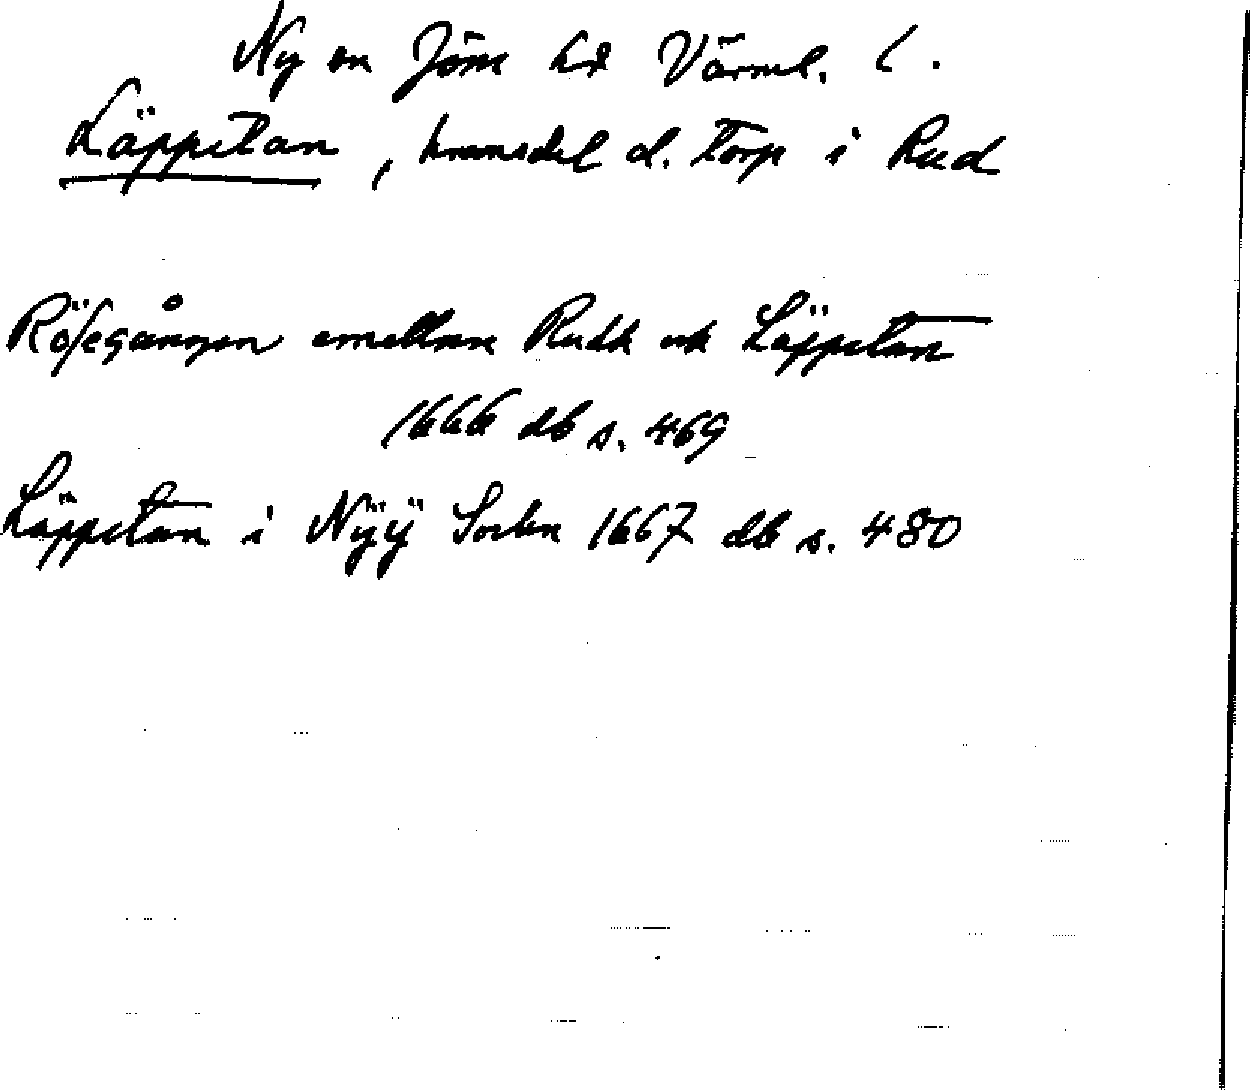 Ny sn Jösse hd Värml. l.
Läppetan, hemmsdel o. torp i Rud
Röfegången emellan Rudh och Läppetan
1666 db s. 469
Läppetan i Nÿÿ Sochn 1667 db s. 480